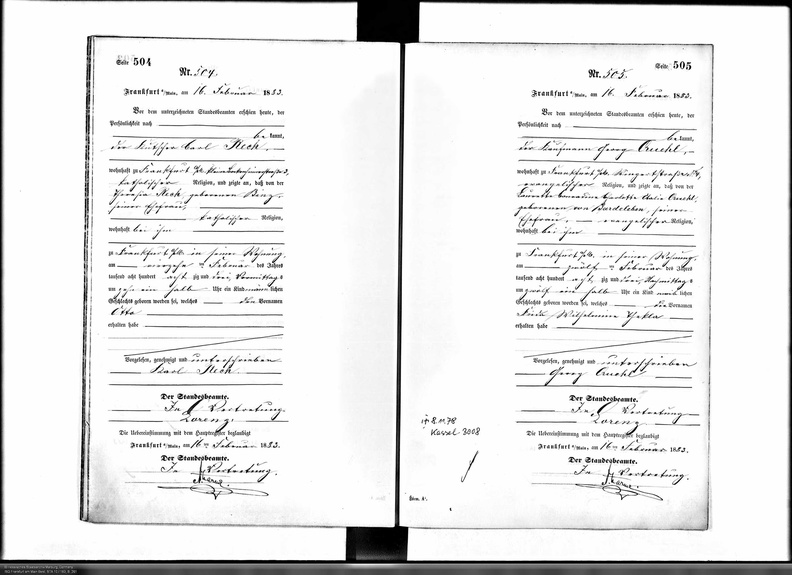 Seite 504
Nr. 504.
Frankfurt a/Main, am 16. Februar 1883.
Vor dem unterzeichneten Standesbeamten erschien heute, der
Persönlichkeit nach
be kannt,
der Kutscher Carl Rech,
wohnhaft zu Frankfurt
katholischer Religion, und zeigte an, daß von der
Theresia Rech, geborenen
seiner Ehefrau,
katholischer Religion,
wohnhaft bei ihm
zu Frankfurt in seiner Wohnung,
am Februar des Jahres
tausend acht hundert acht zig und drei, Vormittags
um zehn ein halb Uhr ein Kind männlichen
Geschlechts geboren worden sei, welches den Vornamen
Otto
erhalten habe
Vorgelesen, genehmigt und unterschrieben
Karl Rech
Der Standesbeamte.
In Vertretung.
Lorenz
Die Uebereinstimmung mit dem Hauptregister beglaubigt
Frankfurt a/Main, am 16ten Februar 1883.
Der Standesbeamte.
In Vertretung.
Seite 505
Nr. 505.
Frankfurt a/Main, am 16. Februar 1883.
Vor dem unterzeichneten Standesbeamten erschien heute, der
Persönlichkeit nach
be kannt,
der Kaufmann Georg
wohnhaft zu Frankfurt
evangelischer Religion, und zeigte an, daß von der
Charlotte
geborenen von seiner
Ehefrau, evangelischer Religion,
wohnhaft bei ihm
zu Frankfurt in seiner Wohnung,
am zwölf Februar des Jahres
tausend acht hundert acht zig und drei, Nachmittags
um zwölf ein halb Uhr ein Kind weiblichen
Geschlechts geboren worden sei, welches die Vornamen
Wilhelmine Thekla
erhalten habe
Vorgelesen, genehmigt und unterschrieben
Georg
Der Standesbeamte.
In Vertretung
Lorenz
Die Uebereinstimmung mit dem Hauptregister beglaubigt
Frankfurt a/Main, am 16ten Februar 1883.
Der Standesbeamte.
In Vertretung.
8.11.78
Kassel 3008
Form. A.